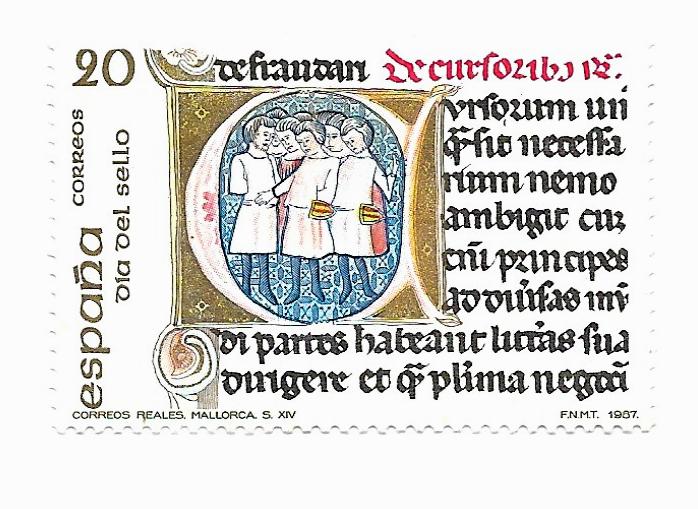 20
CORREOS
día del sello
españa
defraudari De cursoribȝ rͬ.
Cursorum uii
q̄ sit necessa
rium nemo
ambigit cuz
cui principes
ad diuisas
di partes habeant litt̄as sua
dirigere et q̄ plīma negoci
CORREOS REALES. MALLORCA. S. XIV F.N.M.T. 1987.